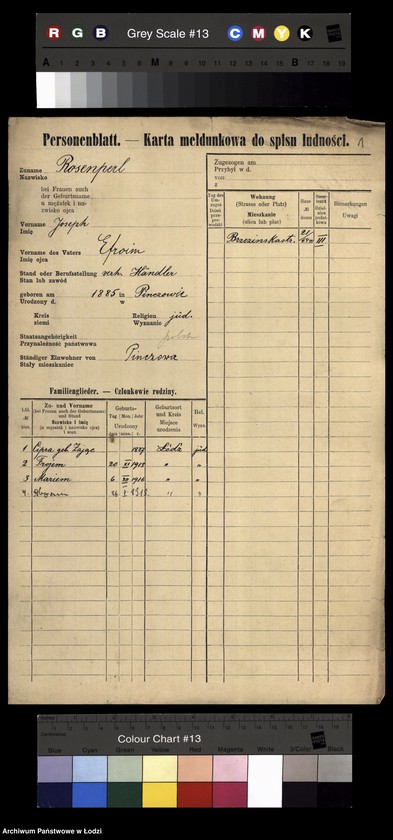 R G B Grey Scale #13 C M Y K
A 1 2 3 4 5 6 M 8 9 10 11 12 13 14 15 B 17 18 19
Personenblatt. — Karta meldunkowa do spisu ludności. 1
Zuname Rosenperl
Nazwisko
bei Frauen auch
der Geburtsname
u mężatek i na-
zwisko ojca
Vorname Joseph
Imię
Vorname des Vaters Efroim
Imię ojca
Stand oder Berufsstellung verh. Händler
Stan lub zawód
geboren am 1885 in Pinczowie
Urodzony d. w
Kreis Religion jüd.
ziemi Wyznanie
Staatsangehörigkeit
Przynależność państwowa
Ständiger Einwohner von Pinczowa
Stały mieszkaniec
Zugezogen am
Przybył w d.
von
z
Wohnung
(Strasse oder Platz)
Mieszkanie
(ulica lub plac)
Bemerkungen
Uwagi
Brzezinskastr. III
Familienglieder. — Członkowie rodziny.
Zu- und Vorname
(bei Frauen auch der Geburtsname)
und Stand
Nazwisko i imię
(u mężatek i nazwisko ojca)
i stan
Geburts-
Tag | Mon. | Jahr
Urodzony
Geburtsort
und Kreis
Miejsce
urodzenia
Rel.
Wyzn.
1 Cipra geb. Zając 1887 Łódź jüd
2 Frojem 20 XI 1913 " "
3 Mariem 6 1916 " "
4. 26 I " "
Colour Chart #13
Blue Cyan Green Yellow Red Magenta White 3/Color Black
Archiwum Państwowe w Łodzi